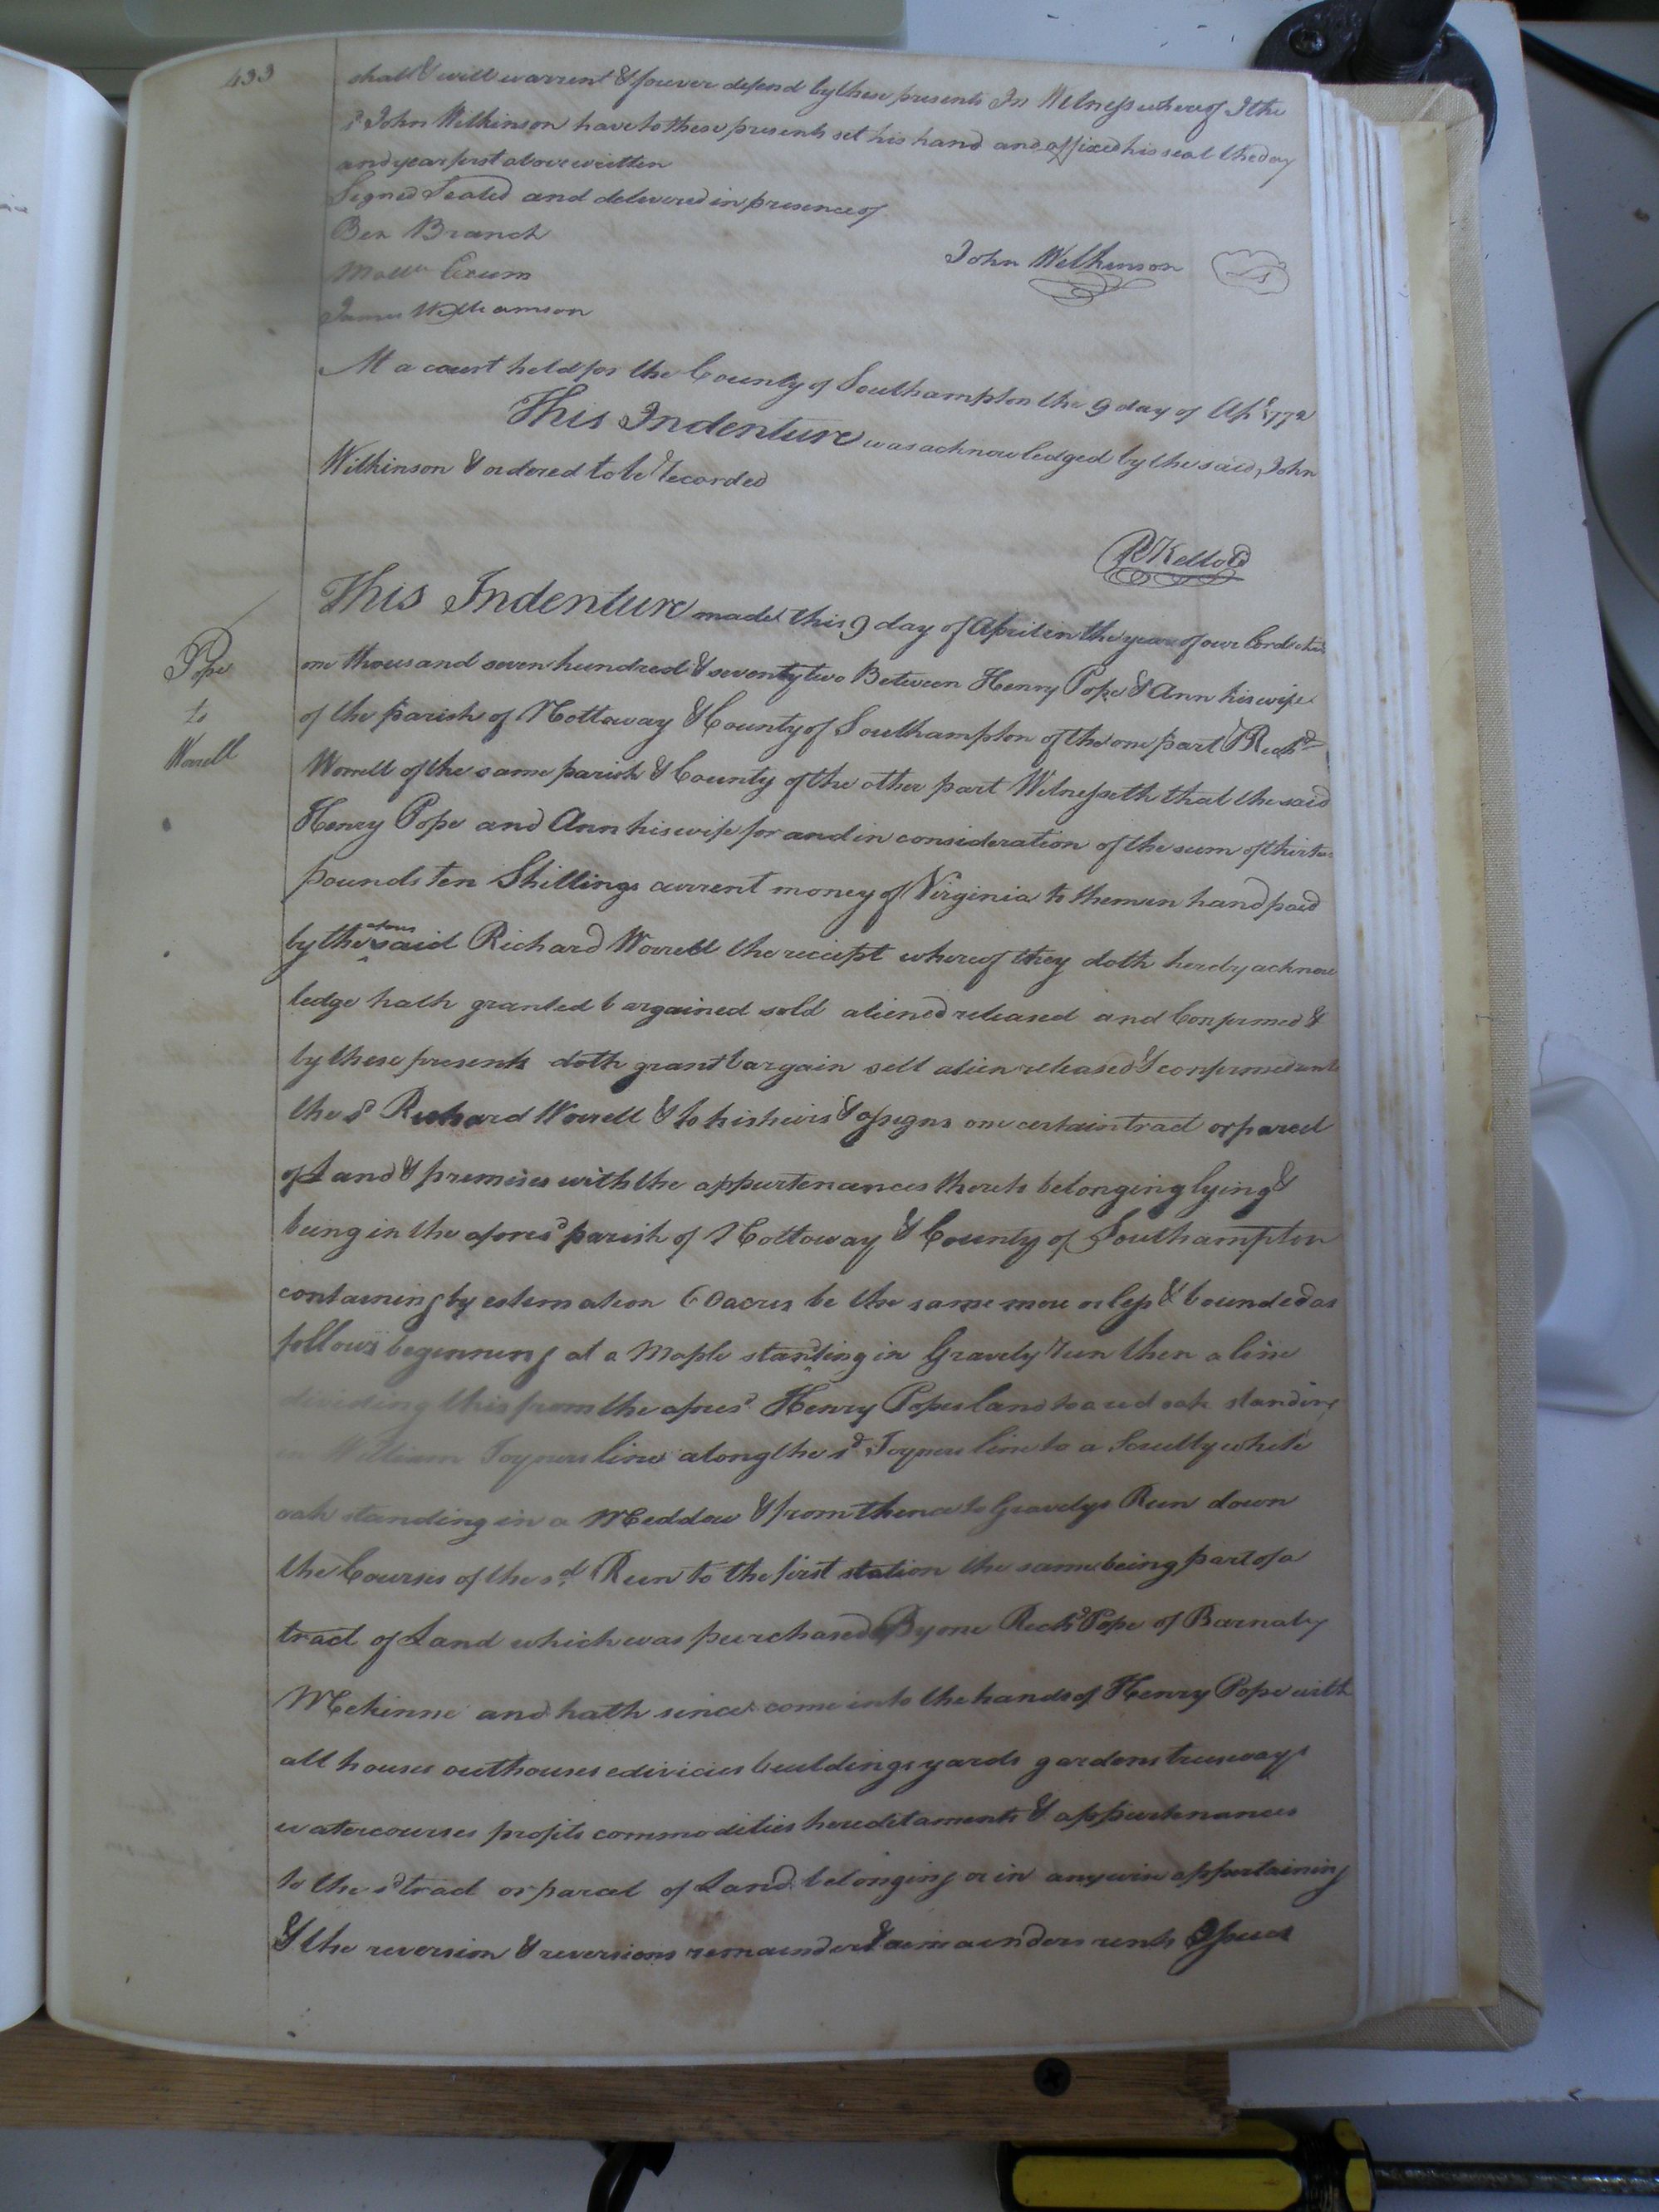 433
shall & will warrent & forever defend by these presents In Witness whereof I the
sd John Wilkinson have to these presents set his hand and affixed his seal the day
and year first above written
Signed Sealed and delivered in presence of
Ben Branch
John Wilkinson
Exum
James Williamson
At a court held for the County of Southampton the 9 day of Apl 1772
This Indenture was acknowledged by the said John
Wilkinson & ordered to be Recorded
R Kello
This Indenture made this 9 day of April in the year of our Lord
one thousand seven hundred & seventy two Between Henry Pope & Ann his wife
Pope
of the parish of Nottoway & County of Southampton of the one part & Richd
to
Worrell of the same parish & County of the other part Witnesseth that the said
Worrell
Henry Pope and Ann his wife for and in consideration of the sum of
pounds ten Shillings current money of Virginia to them in hand paid
by the afore said Richard Worrell the reciept whereof they doth hereby acknow
ledge hath granted bargained sold aliened released and Confirmed &
by these presents doth grant bargain sell alien released & confirmed unto
the sd Richard Worrell & to his heirs & assigns one certain tract or parcel
of Land & premises with the appurtenances thereto belonging lying &
being in the aforesd parish of Nottoway & County of Southampton
containing by estemation 60 acres be the same more or less & bounded as
follows beginning at a Maple standing in Gravely Run then a line
dividing this from the aforesd Henry Popes land to a red oak standing
in William Joyners line along the sd Joyners line to a Scrubby white
oak standing in a Meddow & from thence to Gravelys Run down
the Courses of the sd Run to the first station the same being part of a
tract of Land which was purchased By one Richd Pope of Barnaby
Mckinne and hath since come into the hands of Henry Pope with
all houses outhouses edivicies buildings yards gardens trees ways
watercourses profits commodities hereditaments & appurtenances
to the sd tract or parcel of Land belonging or in any wise appertaining
& the reversion & reversions remainder & remainders rents Issues